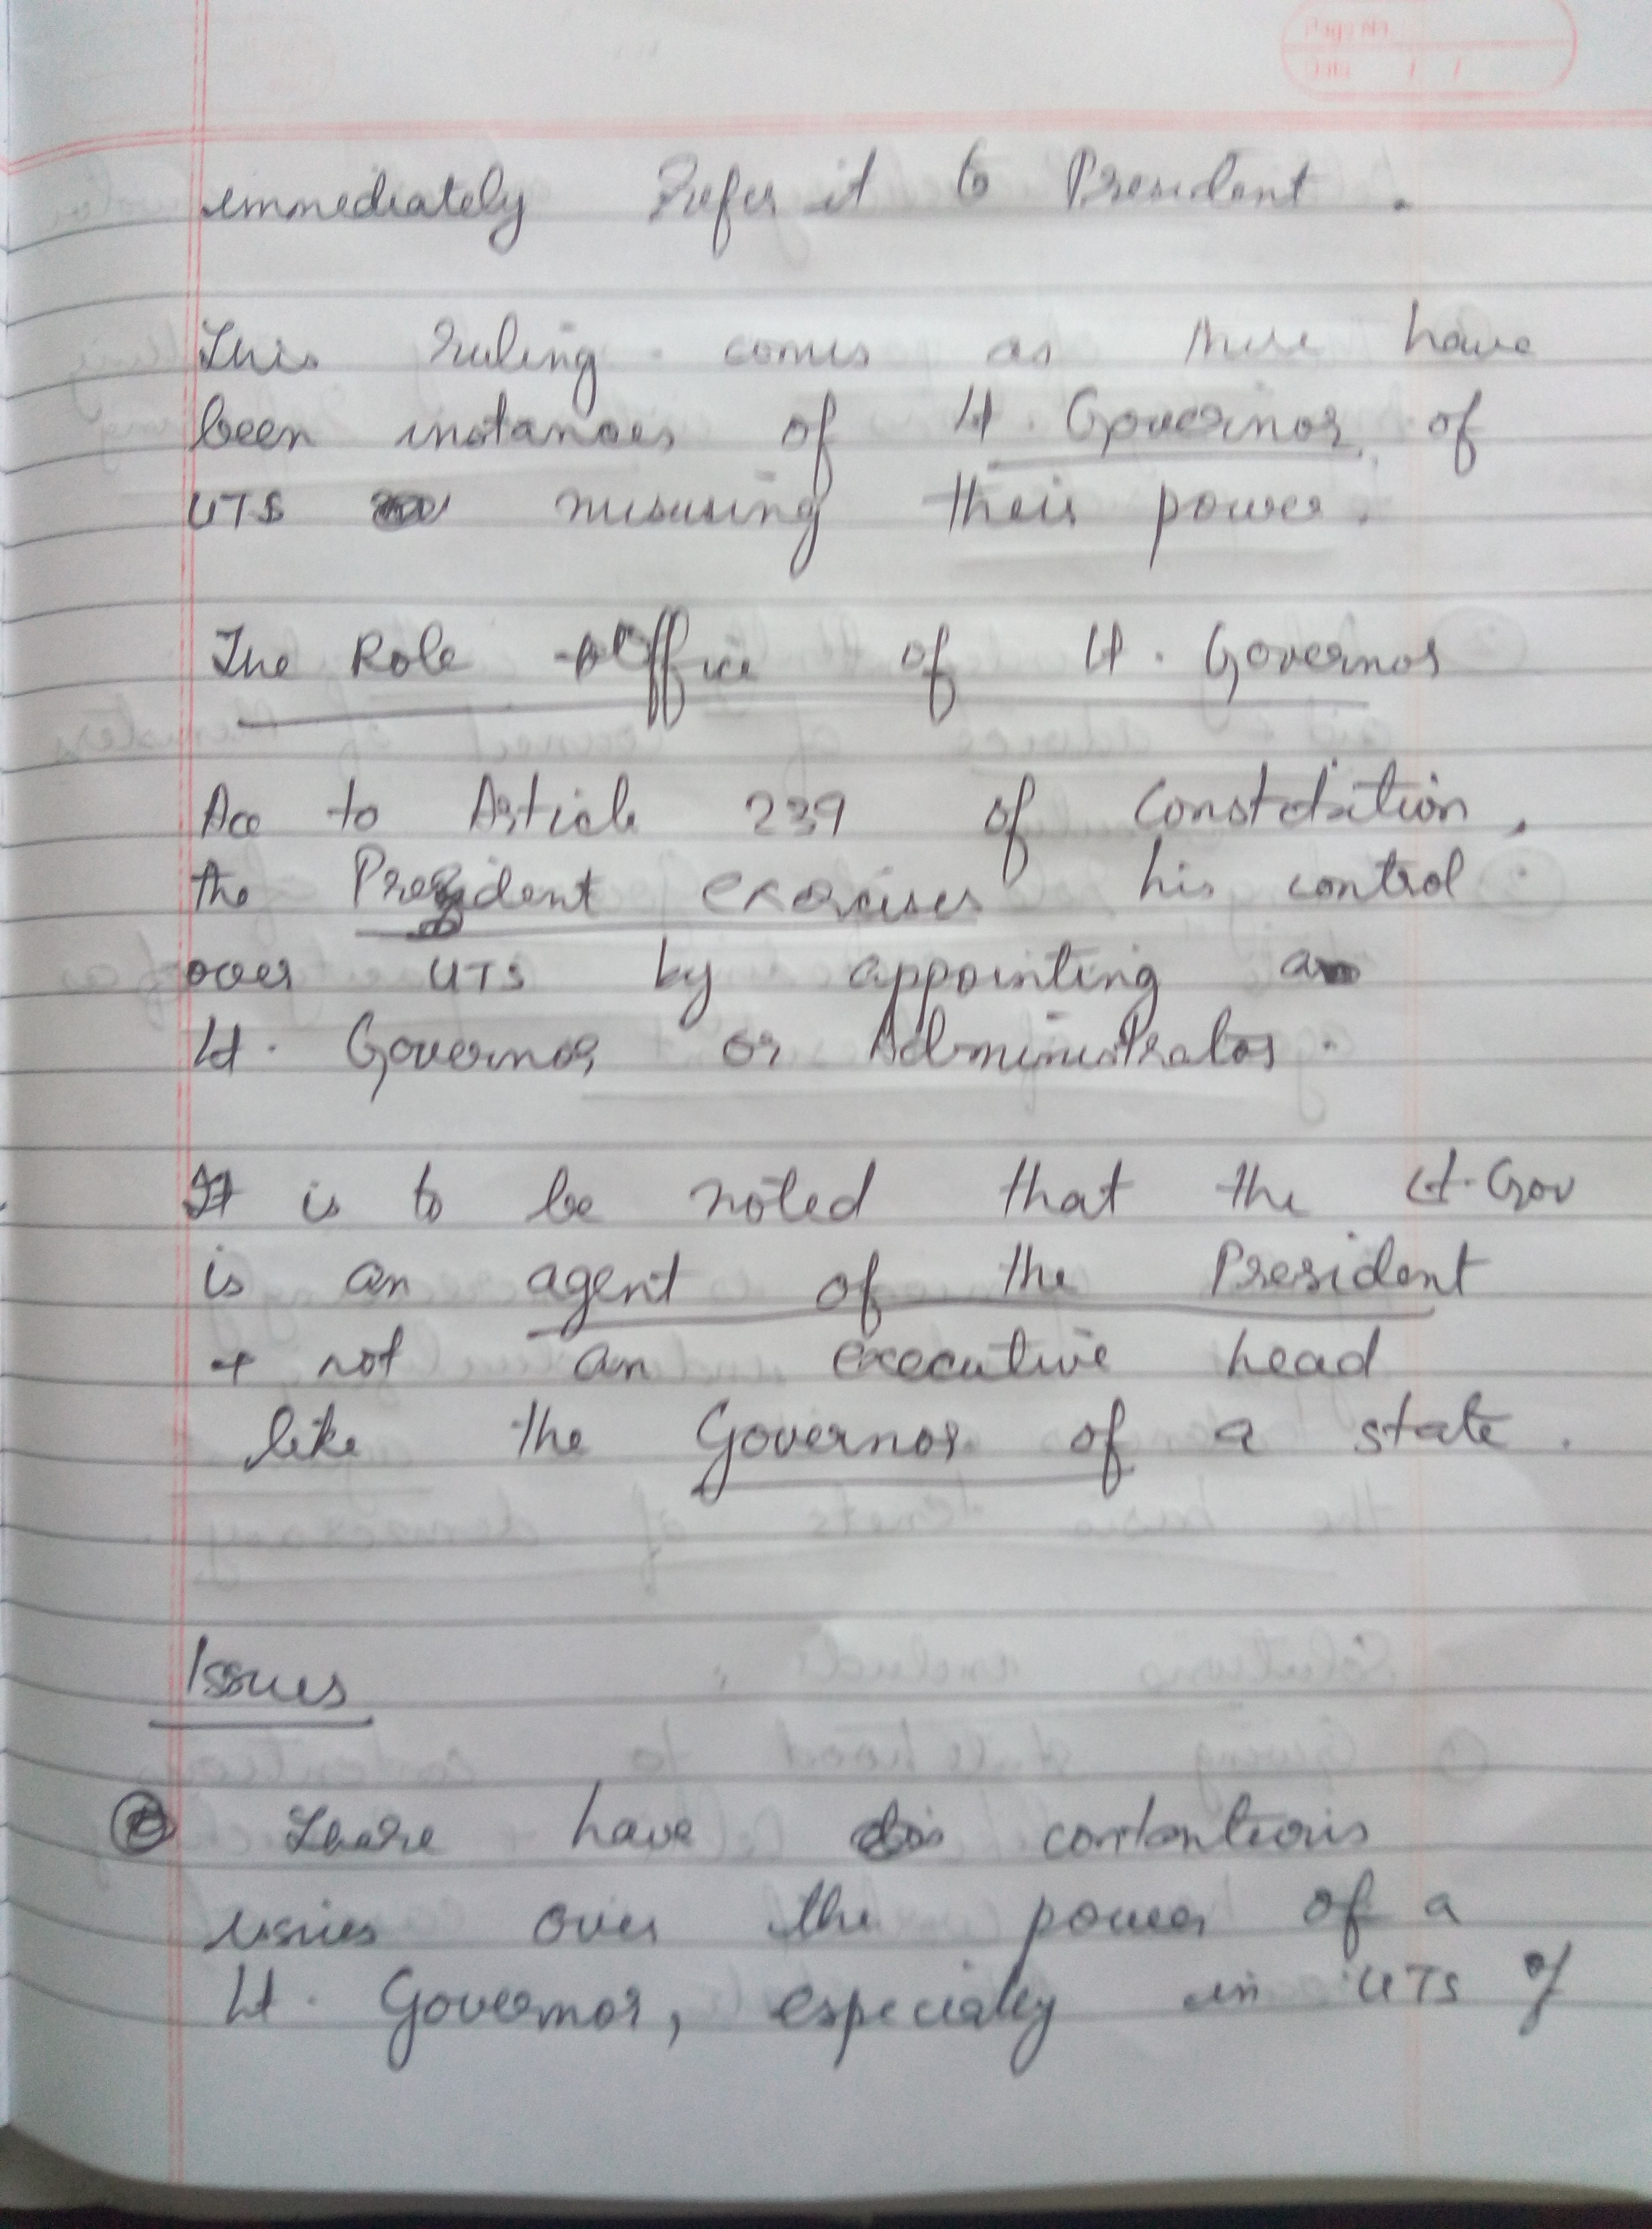 Page No.
Date / /
immediately Refer it to President.
This ruling comes as there have
been instances of Lt. Governor of
UTs misusing their power.
The Role Office of Lt. Governor
Acc to Article 239 of Constitution,
the President exercises his control
over UTs by appointing a
Lt. Governor or Administrator.
It is to be noted that the Lt. Gov
is an agent of the President
+ not an executive head
like the Governor of a state.
Issues
There have contentious
issues over the power of a
Lt. Governor, especially in UTs of